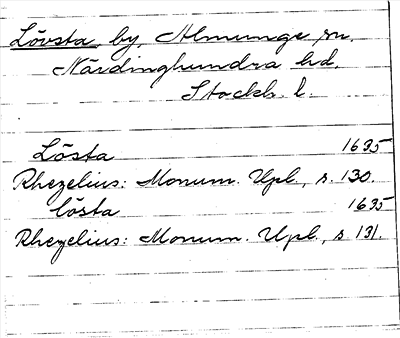 Lövsta by, Almunge sn.
Närdinghundra hd.
Stockh. l.
Lösta 1635
Rhezelius: Monum. Upl., s. 130.
Lösta 1635
Rhezelius: Monum. Upl., s. 131.